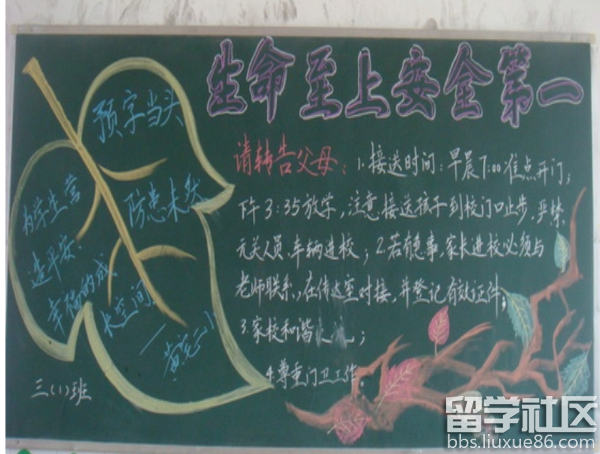 生命至上安全第一
预字当头
防患未然
为学生营
造平安、
幸福的成
长空间
三(1)班
请转告父母:1.接送时间:早晨7:00准点开门;
下午3:35放学,注意接送孩子到校门口止步,严禁
无关人员、车辆进校;2.若有急事,家长进校必须与
老师联系,在传达室对接,并登记有效证件;
3.家校和谐
4.尊重门卫工作
留学社区
bbs.liuxue86.com